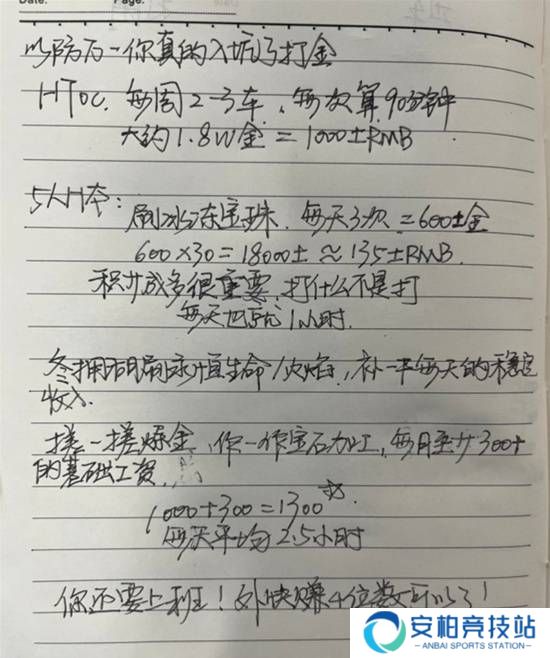 Date:
Page:
以防万一你真的入坑了打金
HTOC. 每周2-3车, 每次算90分钟
大约1.8W金 = 1000±RMB
5人H本:
刷冰冻宝珠. 每天3次 = 600±金
600×30=18000± ≈ 135±RMB.
积少成多很重要, 打什么不是打
每天也就1小时.
冬拥湖刷永恒生命/火焰, 补一平每天的稳定
收入.
搓一搓炼金, 你一作宝石加工, 每月至少300+
的基础工资.
1000+300=1300
每天平均2.5小时
你还要上班! 外快赚4位数可以了!
安柏竞技站
ANBAI SPORTS STATION